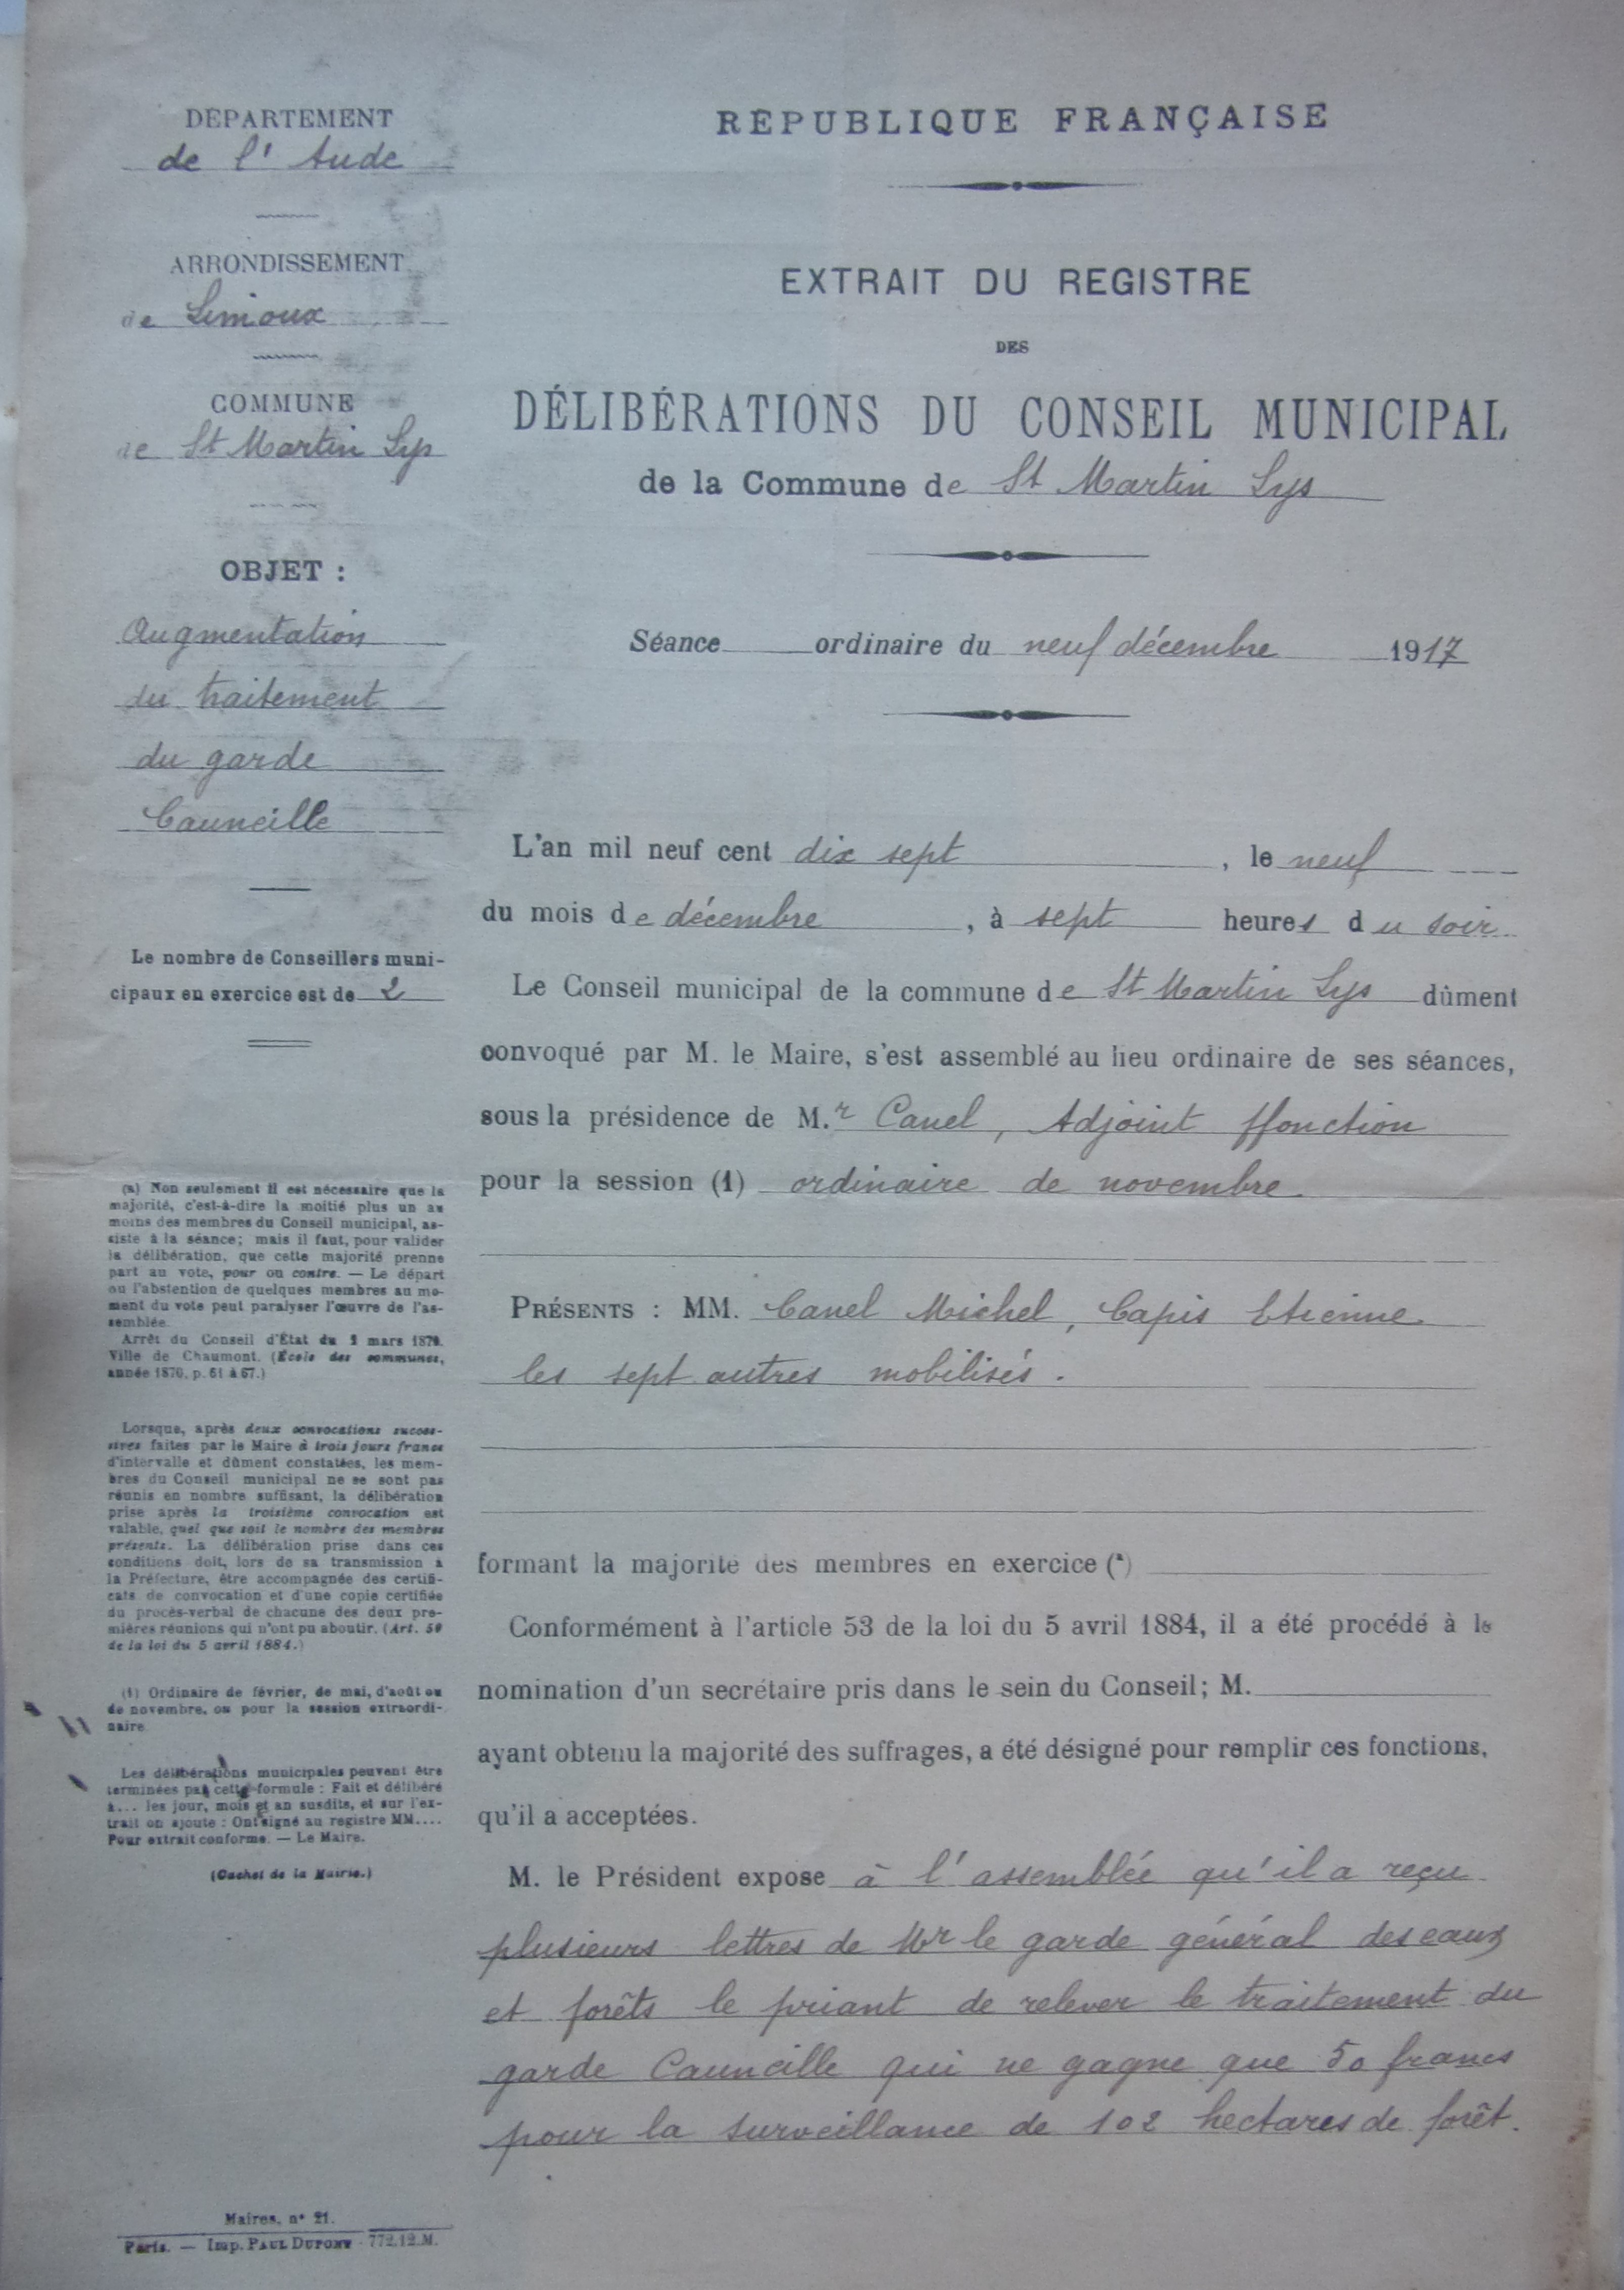 DÉPARTEMENT
de l'Aude
ARRONDISSEMENT
de Limoux
COMMUNE
de St Martin Lys
OBJET :
Augmentation
du traitement
du garde
Cauneille
Le nombre de Conseillers muni-
cipaux en exercice est de 2
(a) Non seulement il est nécessaire que la
majorité, c'est-à-dire la moitié plus un au
moins des membres du Conseil municipal, as-
siste à la séance; mais il faut, pour valider
la délibération, que cette majorité prenne
part au vote, pour ou contre. — Le départ
ou l'abstention de quelques membres au mo-
ment du vote peut paralyser l'œuvre de l'as-
semblée.
Arrêt du Conseil d'État du mars 1870.
Ville de Chaumont. (École des communes,
année 1870, p. 61 à 67.)
Lorsque, après deux convocations succes-
sives faites par le Maire à trois jours francs
d'intervalle et dûment constatées, les mem-
bres du Conseil municipal ne se sont pas
réunis en nombre suffisant, la délibération
prise après la troisième convocation est
valable, quel que soit le nombre des membres
présents. La délibération prise dans ces
conditions doit, lors de sa transmission à
la Préfecture, être accompagnée des certifi-
cats de convocation et d'une copie certifiée
du procès-verbal de chacune des deux pre-
mières réunions qui n'ont pu aboutir. (Art. 50
de la loi du 5 avril 1884.)
(1) Ordinaire de février, de mai, d'août ou
de novembre, ou pour la session extraordi-
naire.
Les délibérations municipales peuvent être
terminées par cette formule : Fait et délibéré
à... les jour, mois et an susdits, et sur l'ex-
trait on ajoute : Ont signé au registre MM....
Pour extrait conforme. — Le Maire.
(Cachet de la Mairie.)
Maires, n° 21.
Paris. — Imp. PAUL DUPONT 772.12.M.
RÉPUBLIQUE FRANÇAISE
EXTRAIT DU REGISTRE
DES
DÉLIBÉRATIONS DU CONSEIL MUNICIPAL
de la Commune de St Martin Lys
Séance ordinaire du neuf décembre 1917
L'an mil neuf cent dix sept , le neuf
du mois de décembre , à sept heures du soir
Le Conseil municipal de la commune de St Martin Lys dûment
convoqué par M. le Maire, s'est assemblé au lieu ordinaire de ses séances,
sous la présidence de M.r Canel, Adjoint ffonction
pour la session (1) ordinaire de novembre.
PRÉSENTS : MM. Canel Michel, Capis Etienne
les sept autres mobilisés.
formant la majorité des membres en exercice (a)
Conformément à l'article 53 de la loi du 5 avril 1884, il a été procédé à la
nomination d'un secrétaire pris dans le sein du Conseil; M.
ayant obtenu la majorité des suffrages, a été désigné pour remplir ces fonctions,
qu'il a acceptées.
M. le Président expose à l'assemblée qu'il a reçu
plusieurs lettres de Mr le garde général des eaux
et forêts le priant de relever le traitement du
garde Cauneille qui ne gagne que 50 francs
pour la surveillance de 102 hectares de forêt.